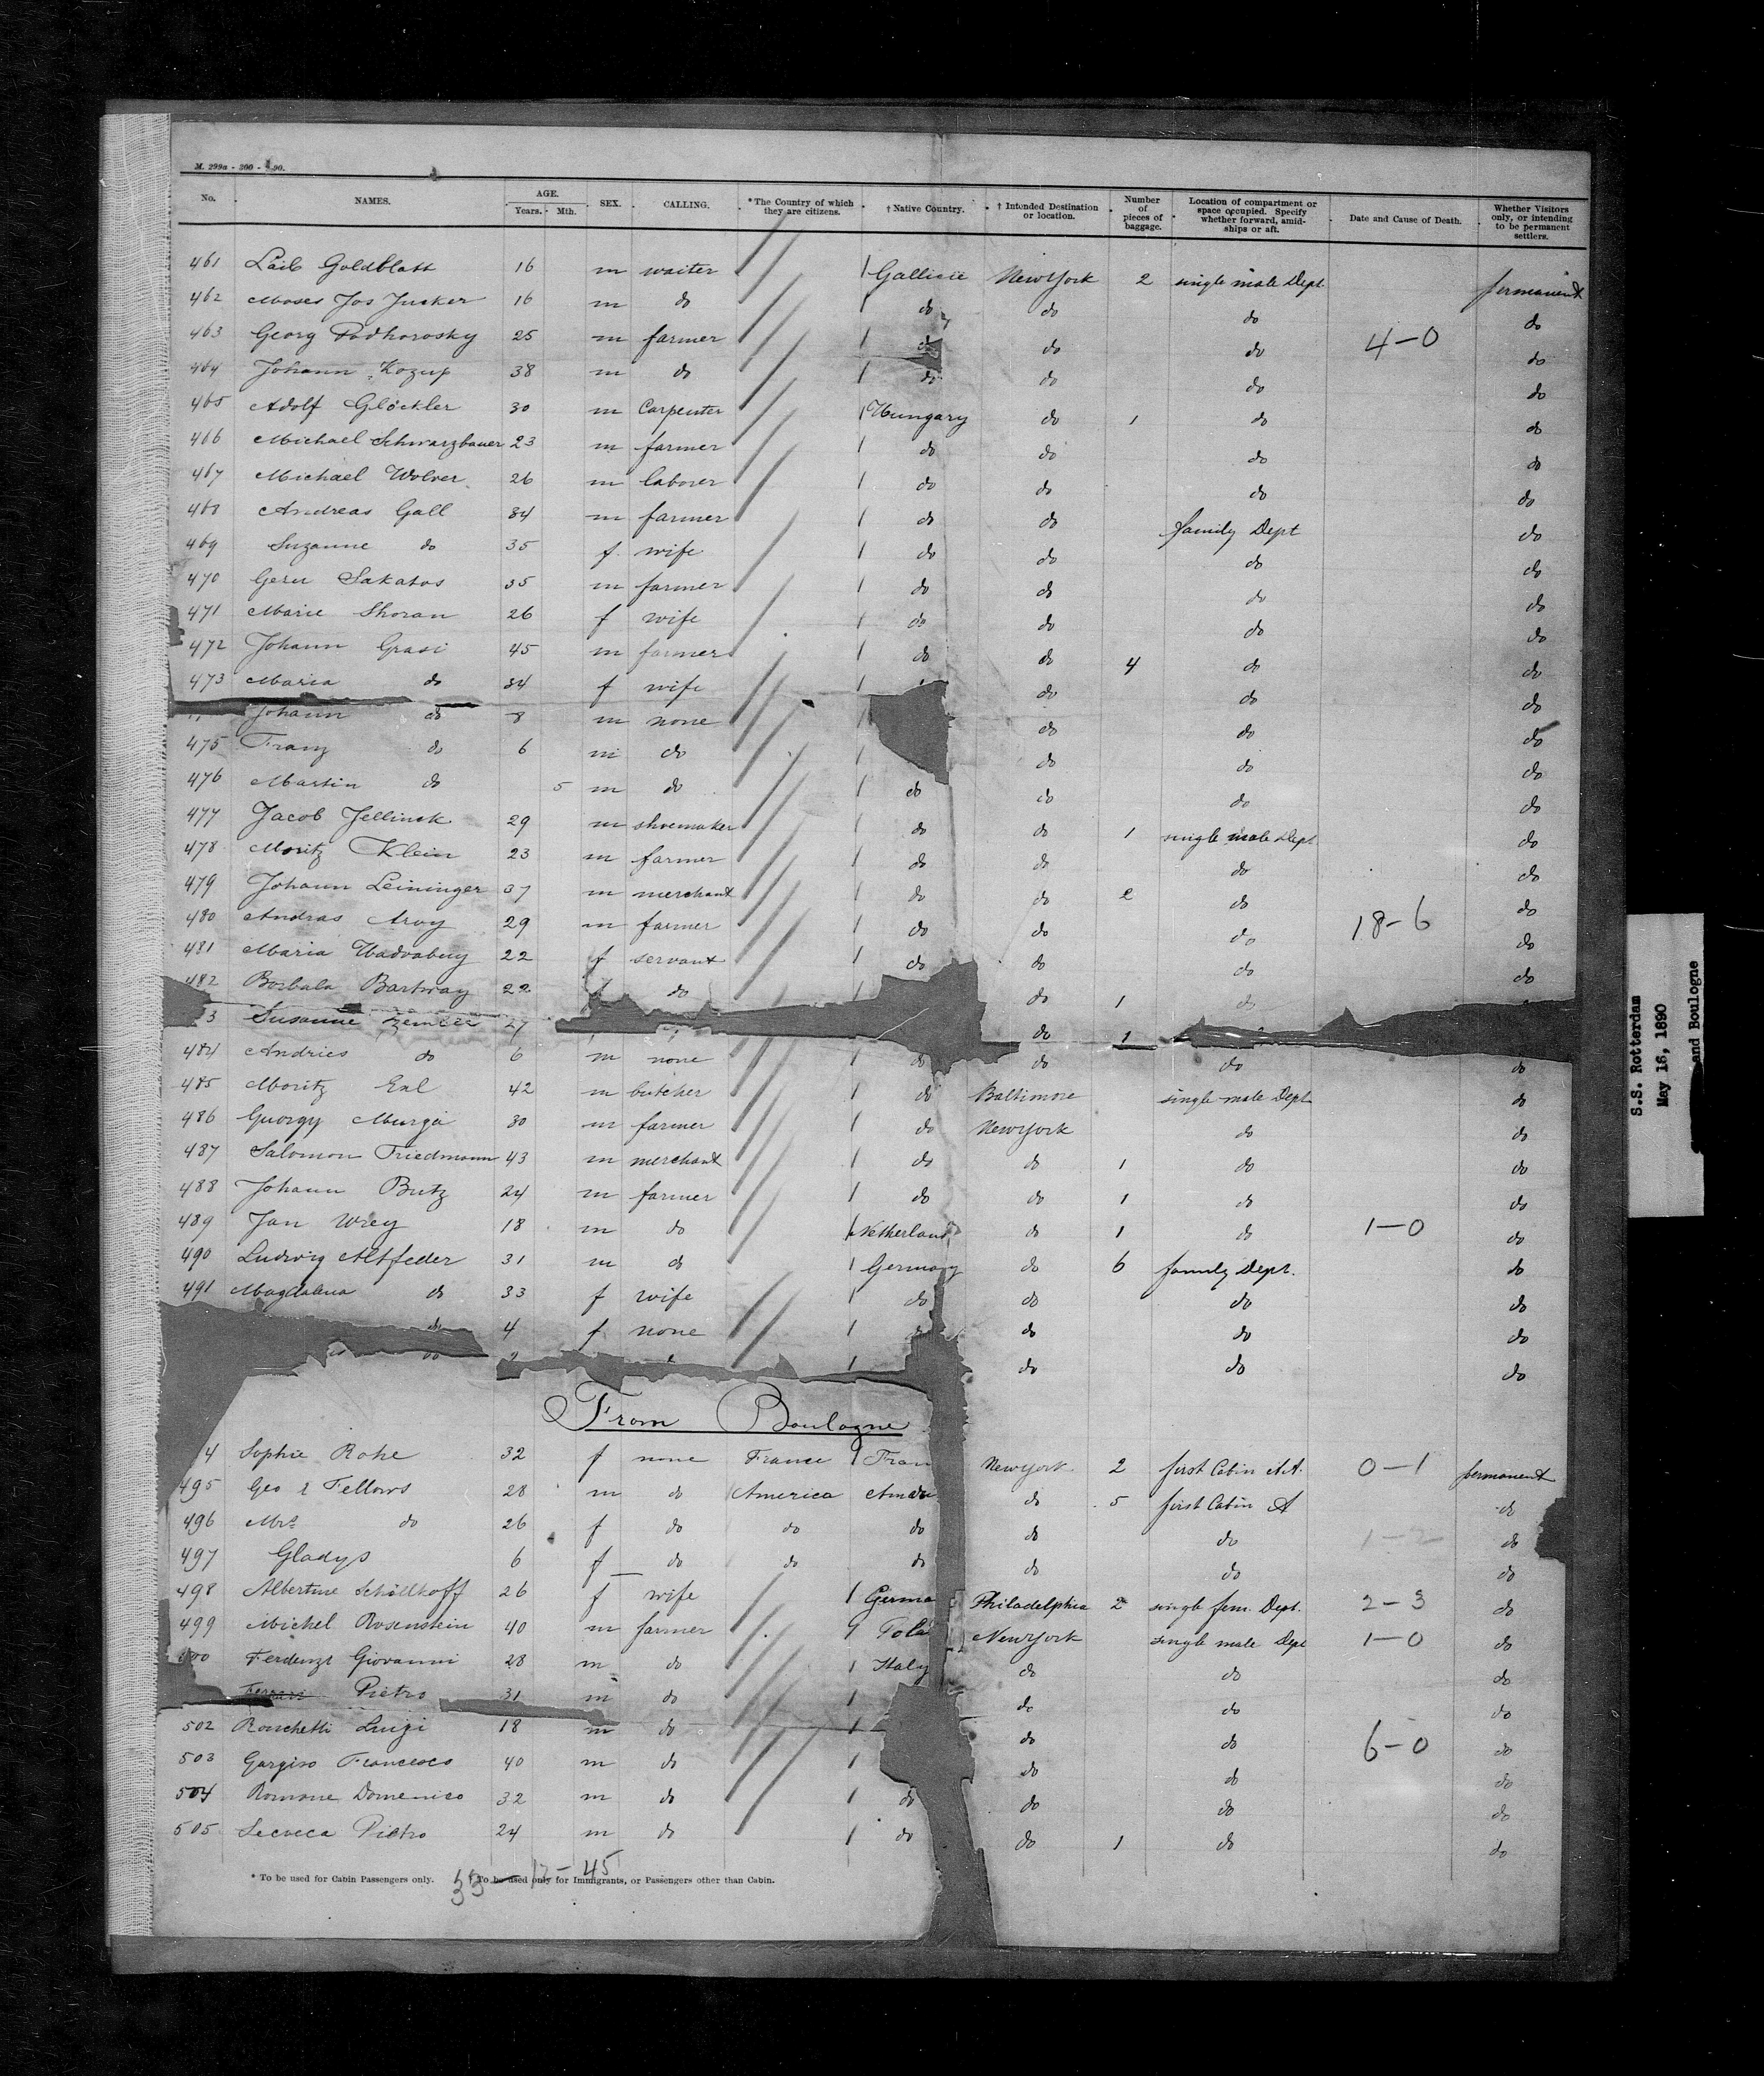 M. 299a - 200 - 90.
No. NAMES. AGE. Years. Mth. SEX. CALLING. * The Country of which they are citizens. † Native Country. † Intended Destination or location. Number of pieces of baggage. Location of compartment or space occupied. Specify whether forward, amidships or aft. Date and Cause of Death. Whether Visitors only, or intending to be permanent settlers.
461 Laib Goldblatt 16 m waiter 1 Gallicie New York 2 single male Dept permanent
462 Moses Jos Jucker 16 m do 1 do do do do
463 Georg Podhorosky 25 m farmer 1 do do do 4-0 do
464 Johann Kozup 38 m do 1 do do do do
465 Adolf Glöckler 30 m Carpenter 1 Hungary do 1 do do
466 Michael Schwarzbauer 23 m farmer 1 do do do do
467 Michael Wolver 26 m laborer 1 do do do do
468 Andreas Gall 34 m farmer 1 do do family Dept do
469 Suzanne do 35 f wife 1 do do do do
470 Geru Sakatos 35 m farmer 1 do do do do
471 Marie Shoran 26 f wife 1 do do do do
472 Johann Grasi 45 m farmer 1 do do 4 do do
473 Maria do 34 f wife 1 do do do
Johann do 8 m none 1 do do do
475 Franz do 6 m do 1 do do do
476 Martin do 5 m do 1 do do do do
477 Jacob Jellinek 29 m shoemaker 1 do do 1 single male Dept do
478 Moritz Klein 23 m farmer 1 do do do do
479 Johann Leininger 37 m merchant 1 do do 2 do do
480 Andras Arvy 29 m farmer 1 do do do 18-6 do
481 Maria 22 f servant 1 do do do do
482 Borbala Bartway 22 f do 1 do 1 do
3 Susanne 27 do 1
484 Andries do 6 m none 1 do do do do
485 Moritz Exl 42 m butcher 1 do Baltimore single male Dept do
486 Guorgy Murga 30 m farmer 1 do New York do do
487 Salomon Friedmann 43 m merchant 1 do do 1 do do
488 Johann Butz 24 m farmer 1 do do 1 do do
489 Jan Wrey 18 m do 1 Netherland do 1 do 1-0 do
490 Ludwig Altfeder 31 m do 1 Germany do 6 family Dept. do
491 Magdalena do 33 f wife 1 do do do do
do 4 f none 1 do do do
do 2 1 do do do
From Boulogne
4 Sophie Rohe 32 f none France 1 Fran New York 2 first Cabin AA. 0-1 permanent
495 Geo L Fellows 28 m do America Ame do 5 first Cabin A do
496 Mrs do 26 f do do do do do 1-2 do
497 Gladys 6 f do do do do do do
498 Albertine Schöllhoff 26 f wife 1 Germa Philadelphia 2 single fem. Dept. 2-3 do
499 Michel Rosenstein 40 m farmer 1 Pola New York single male Dept 1-0 do
500 Ferdenzi Giovanni 28 m do 1 Italy do do do
Ferrari Pietro 31 m do 1 do do do
502 Ronchetti Luigi 18 m do 1 do do do
503 Gargiso Francesco 40 m do 1 do do 6-0 do
504 Romone Domenico 32 m do 1 do do do do
505 Secreca Pietro 24 m do 1 do do 1 do do
* To be used for Cabin Passengers only. † To be used only for Immigrants, or Passengers other than Cabin.
33 - 12 - 45
S.S. Rotterdam
May 16, 1890
and Boulogne